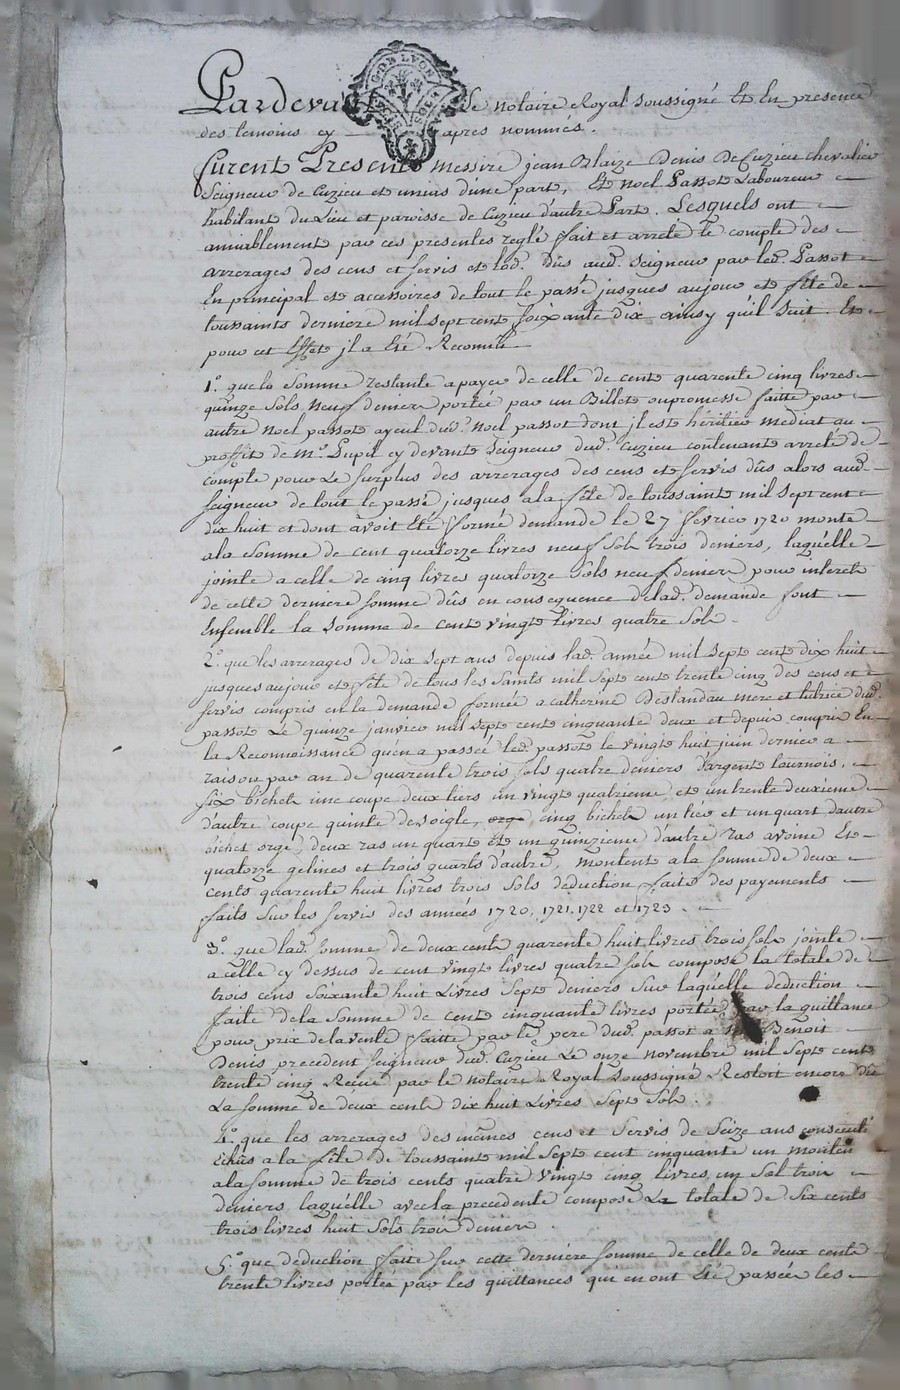 Pardevant le notaire Royal soussigné Et En presence
G. DE LYON
des temoins cy apres nommés.
Furent Presents messire jean Blaize Denis De Cuzieu chevalier
Seigneur de Cuzieu et unias d'une part, Et noel Passot Laboureur
habitant du Lieu et paroisse de Cuzieu d'autre Part. Lesquels ont
amiablement par ces presentes reglé fait et arreté le compte des
arrerages des cens et servis et lod. dûs aud. Seigneur par led. Passot
En principal et accessoires de tout le passé jusques aujour et fête de
toussaints derniere mil sept cent soixante dix ainsy qu'il suit. Et
pour cet Effet jl a Eté Reconnu
1.° que la Somme restante a payer de celle de cent quarente cinq livres
quinze sols neuf deniers portée par un Billet ou promesse faitte par
autre Noel passot ayeul dud. Noel passot dont jl est héritier mediat au
proffit de m.r Pupil cy devant Seigneur dud. Cuzieu contenant arreté de
compte pour Le surplus des arrerages des cens et servis dûs alors aud.
seigneur de tout le passé jusques a la fête de toussaint mil sept cent
dix huit et dont avoit Eté formé demande le 27 fevrier 1720 monte
a la Somme de cent quatorze livres neuf sols trois deniers, laquelle
jointe a celle de cinq livres quatorze Sols neuf deniers pour interets
de cette derniere somme dûs en consequence de lad. demande font
Ensemble la Somme de Cent vingt livres quatre Sols.
2.° que les arrerages de dix sept ans depuis lad. année mil sept cent dix huit
jusques aujour et fête de tous les Saints mil sept cent trente cinq des cens et
servis compris en la demande formée a catherine Deslandau mere et tutrice dud.
passot Le quinze janvier mil sept cent cinquante deux et depuis compris En
la Reconnoissance qu'en a passée led. passot le vingt huit juin dernier a
raison par an de quarente trois sols quatre deniers d'argent tournois,
six bichets une coupe deux tiers un vingt quatrieme et un trente deuxieme
d'autre coupe quinte de soigle, orge cinq bichets un tiers et un quart d'autre
bichet orge, deux ras un quart et un quinzieme d'autre ras avoine Et
quatorze gelines et trois quarts d'autre, montent a la somme de deux
cents quarente huit livres trois Sols deduction faite des payements
faits Sur les servis des années 1720, 1721, 1722 et 1723.
3.° que lad. somme de deux cents quarente huit livres trois sols jointe
a celle cy dessus de cent vingt livres quatre sols compose la totale de
trois cens soixante huit Livres Sept deniers sur laquelle deduction
faite de la Somme de cent cinquante livres portée par la quittance
pour prix de la vente faitte par le pere dud. passot a Benoit
Denis precedent seigneur dud. Cuzieu Le onze novembre mil sept cent
trente cinq Recue par le notaire Royal soussigné Restoit encore dûe
La somme de deux cents dix huit Livres Sept Sols.
4.° que les arrerages des mêmes cens et Servis de Seize ans consecutifs
Echus a la fête de toussaints mil sept cent cinquante un montent
a la somme de trois cents quatre vingt cinq livres un Sol trois
deniers laquelle avec la precedente compose La totale de Six cents
trois livres huit sols trois deniers.
5.° que deduction faite sur cette derniere somme de celle de deux cents
trente livres portée par les quittances qui en ont Eté passées les